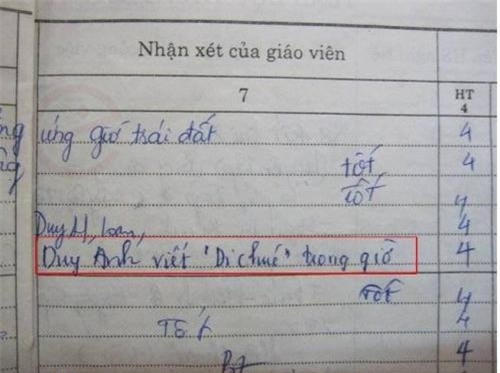 Nhận xét của giáo viên
HT
7
4
úng giờ trái đất
4
tốt
4
tốt
4
Duy H, loan,
4
Duy Anh viết "Di chúc" trong giờ
4
Tốt
4
Tốt
4
4